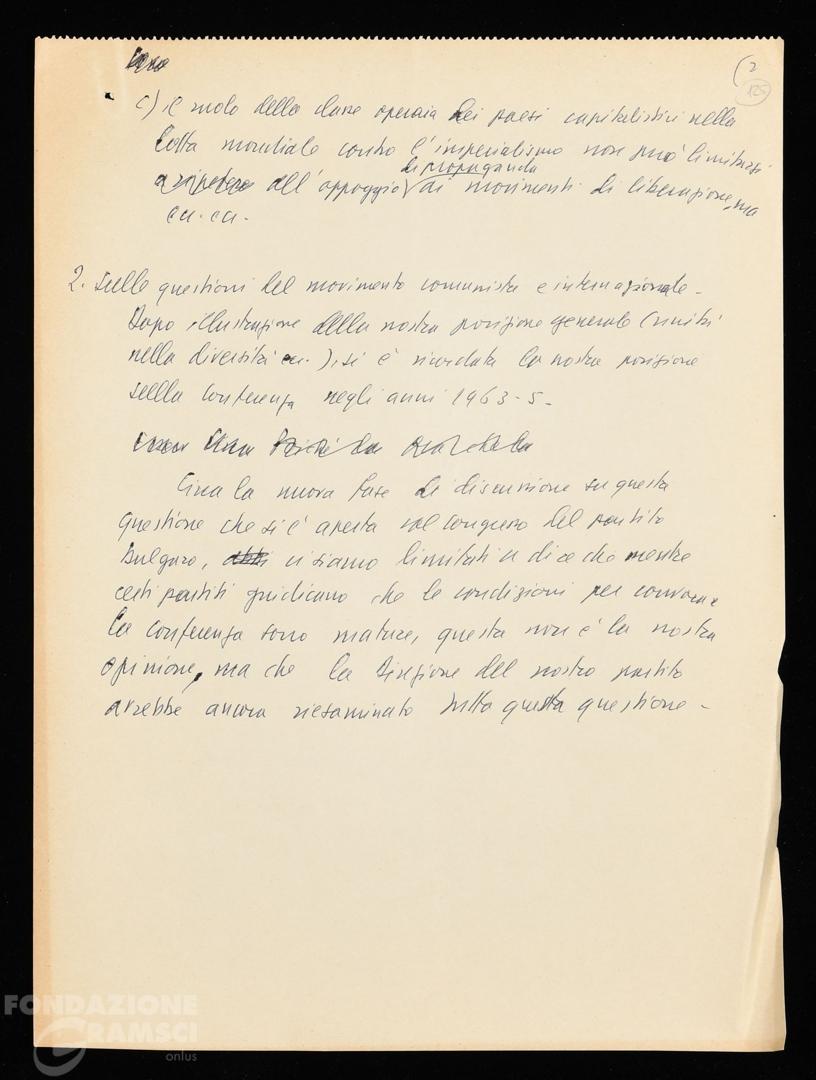 (2
125
c) il ruolo della classe operaia dei paesi capitalistici nella
lotta mondiale contro l'imperialismo non può limitarsi
di propaganda
all'appoggio ai movimenti di liberazione, ma
ecc. ecc.
2. Sulle questioni del movimento comunista e internazionale.
Dopo illustrazione della nostra posizione generale (unità
nella diversità ecc.), si è ricordata la nostra posizione
sulla conferenza negli anni 1963-5.
Circa la nuova fase di discussione su questa
questione che si è aperta col congresso del partito
bulgaro, ci siamo limitati a dire che mentre
certi partiti giudicano che le condizioni per convocare
la conferenza sono mature, questa non è la nostra
opinione, ma che la Direzione del nostro partito
avrebbe ancora riesaminato tutta questa questione.
FONDAZIONE
GRAMSCI
onlus